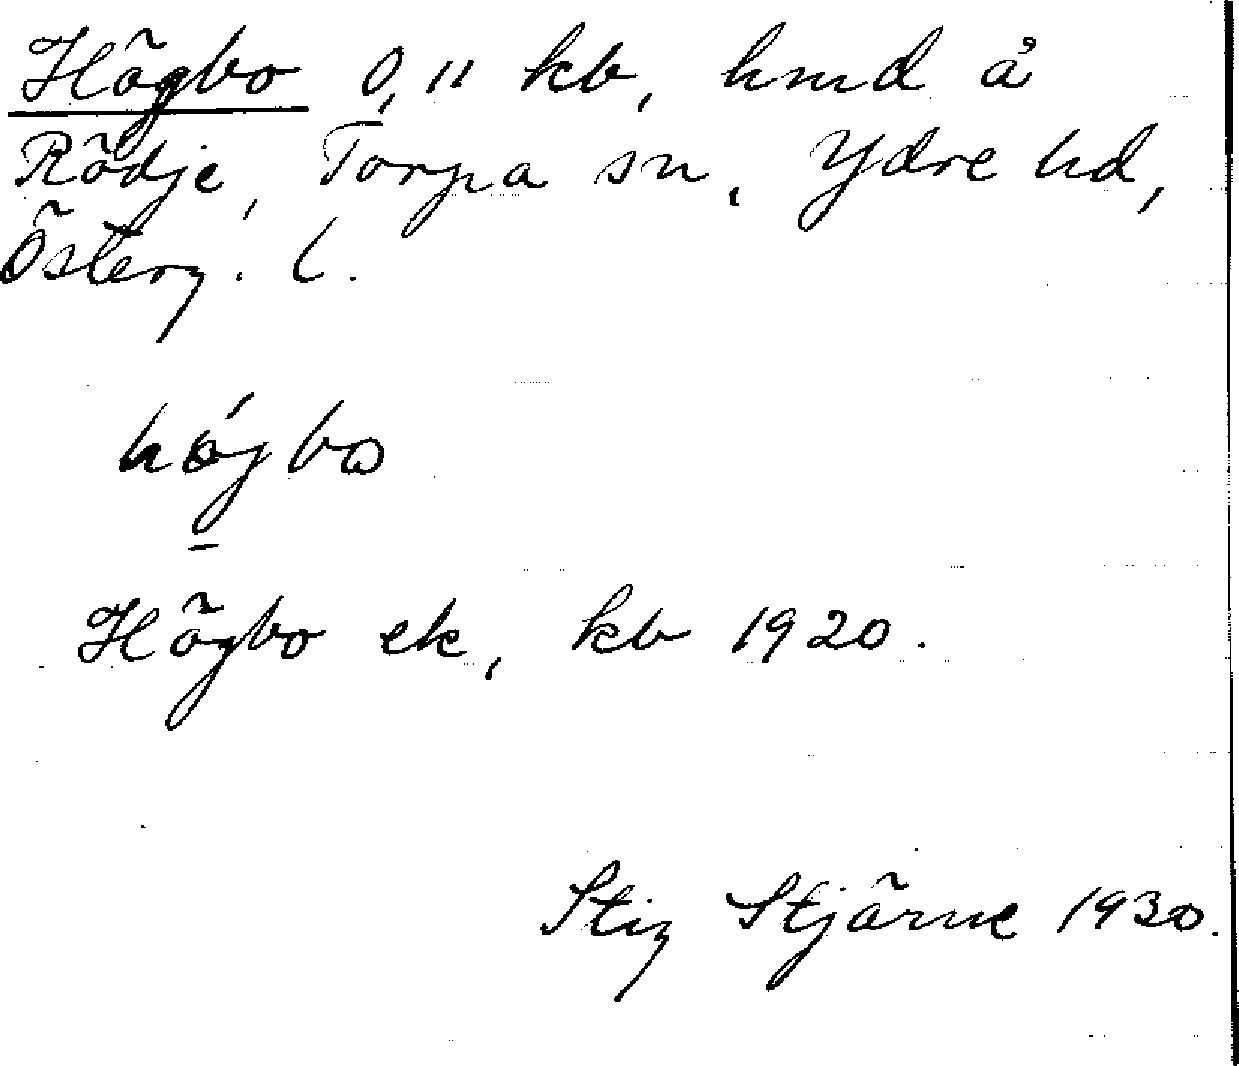 Högbo 0,11 kb, hmd å
Rödje, Torpa sn, Ydre hd,
Österg. l.
hǿgbo
Högbo ek, kb 1920.
Stig Stjärne 1930.